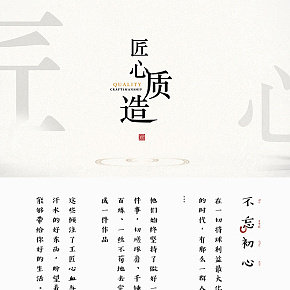 匠心
质造
QUALITY
CRAFTSMANSHIP
匠
心
不忘初心
在一切将球利益最大化
的时代，有那么一群人
…
他们始终坚持了做好一
件事，切磋琢磨，
百炼，一丝不苟地去完
成一件作品
这些倾注了工匠心血与
汗水的好东西，盼望着
能够带给你好的生活，